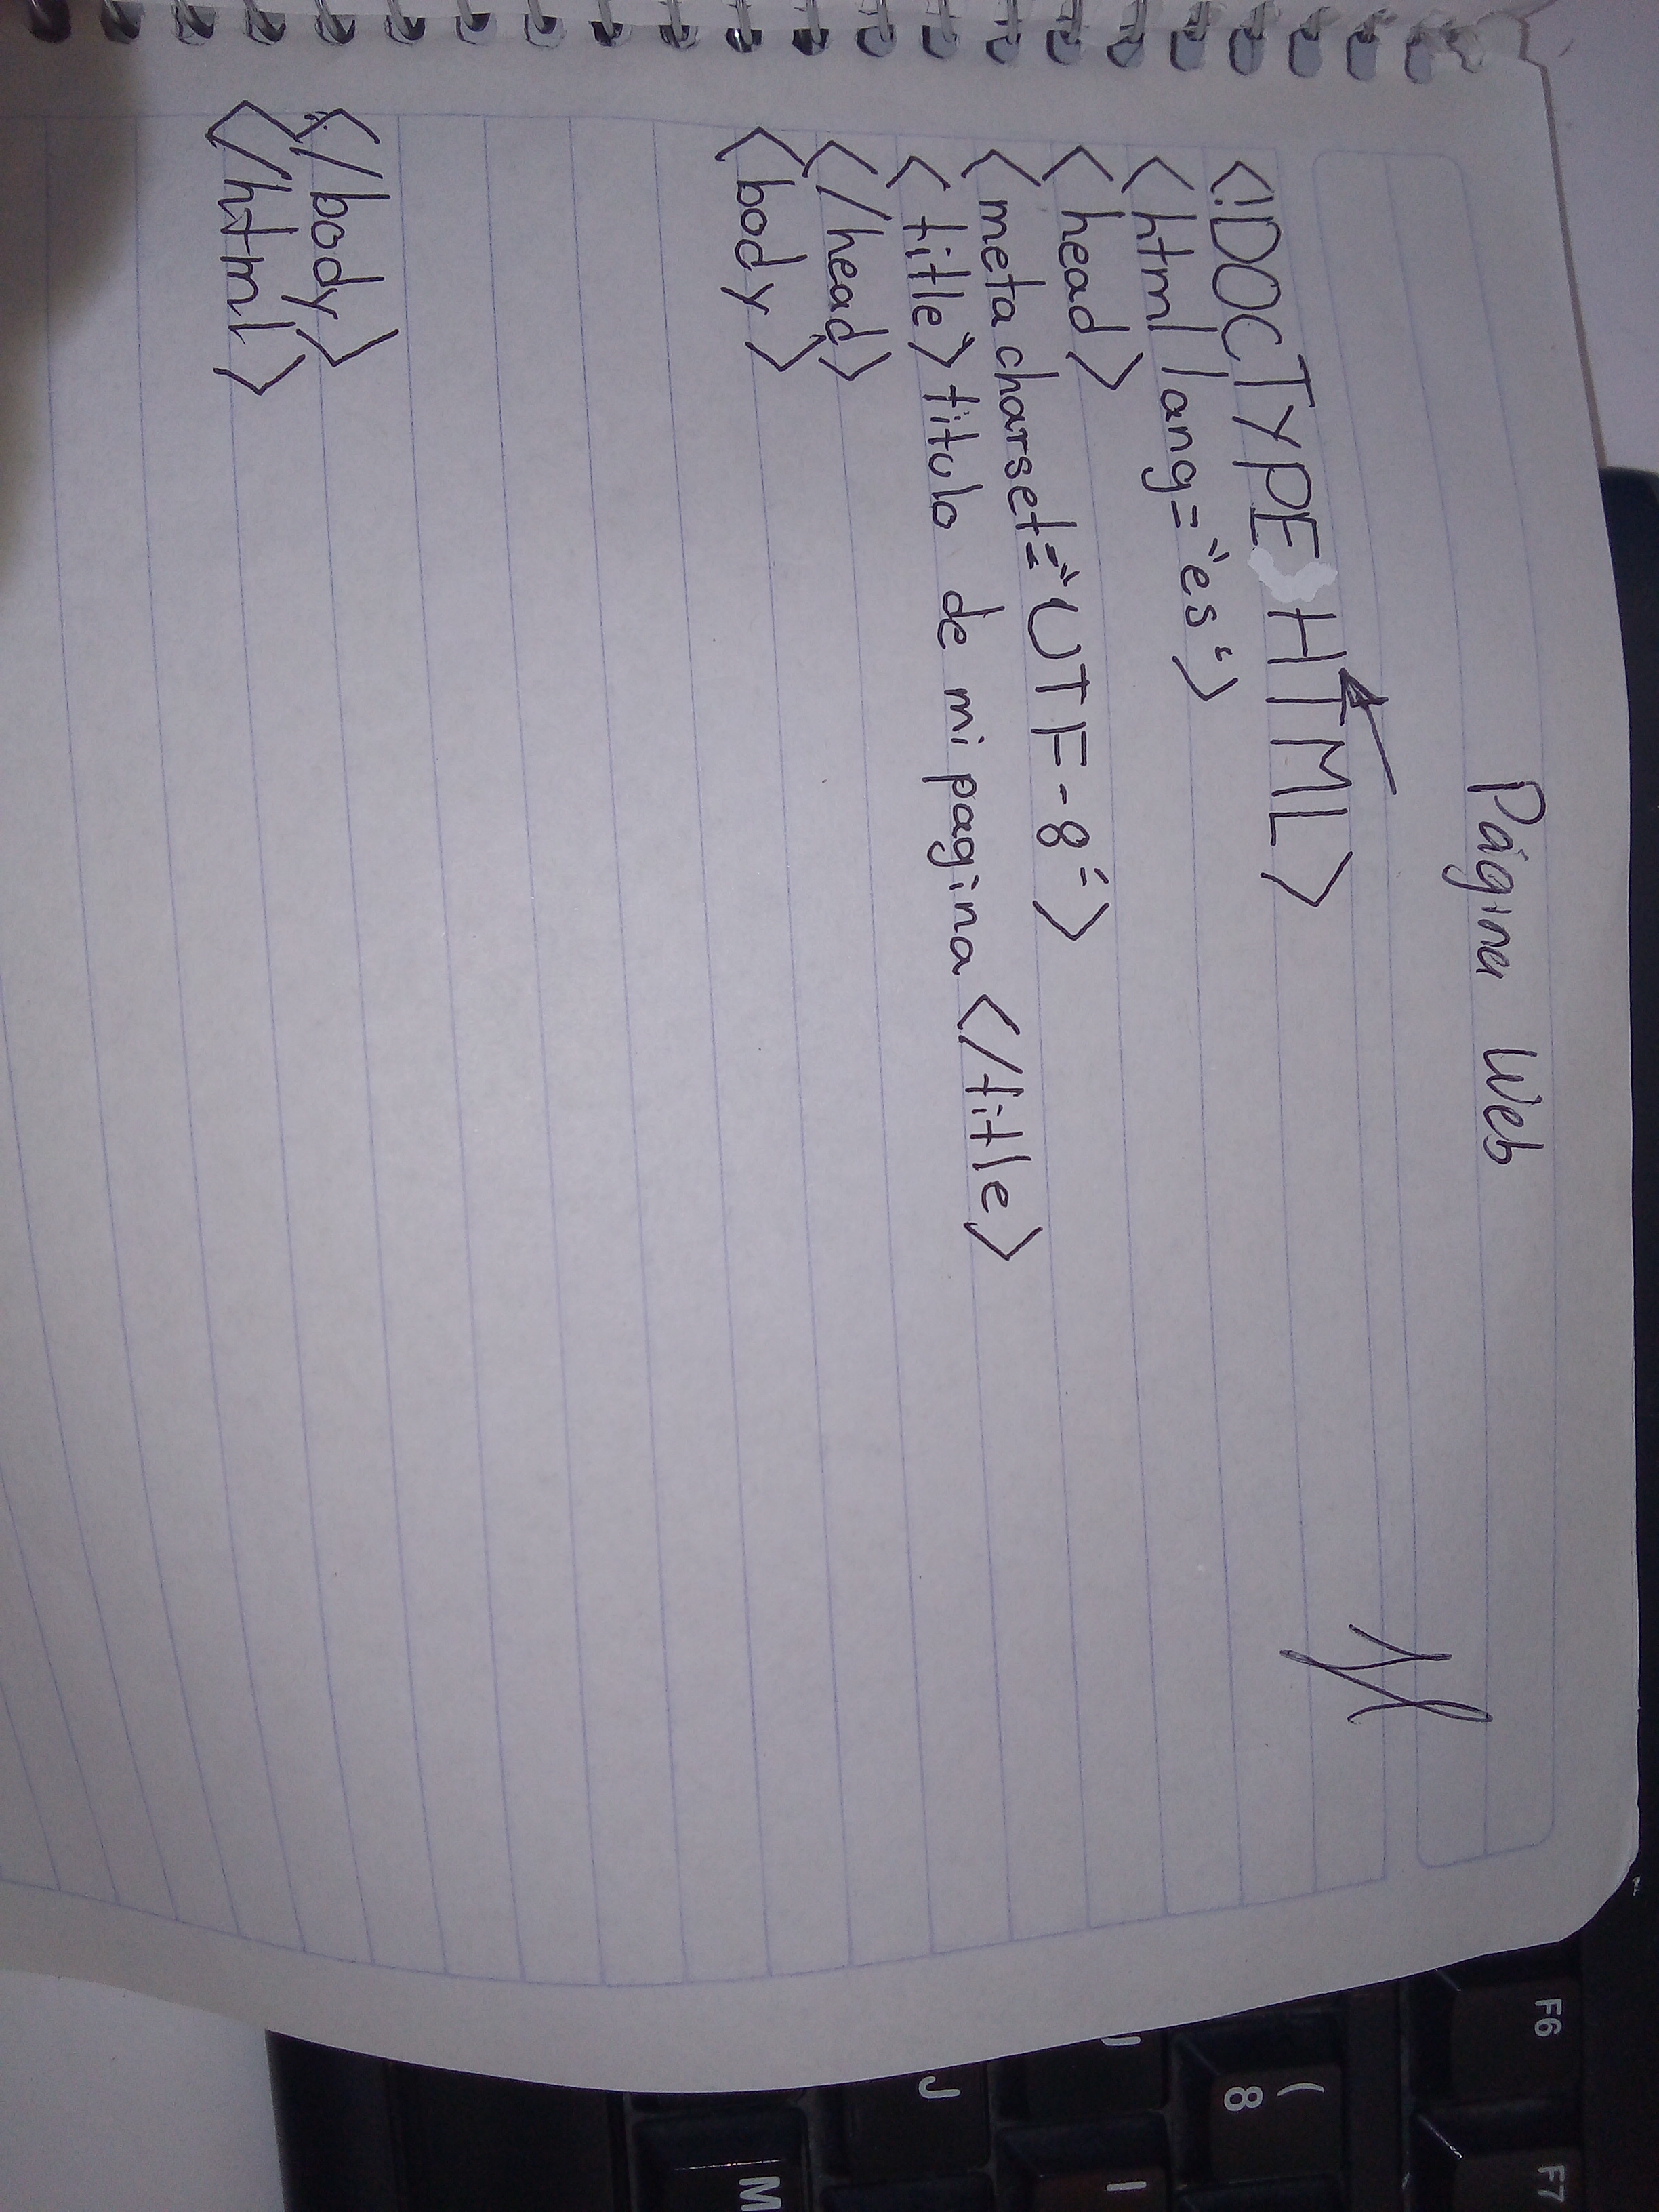 Página Web
<!DOCTYPE HTML>
<html lang="es">
<head>
<meta charset="UTF-8">
<title>titulo de mi pagina </title>
</head>
<body>
</body>
</html>
F6
F7
( 8
J
I
M